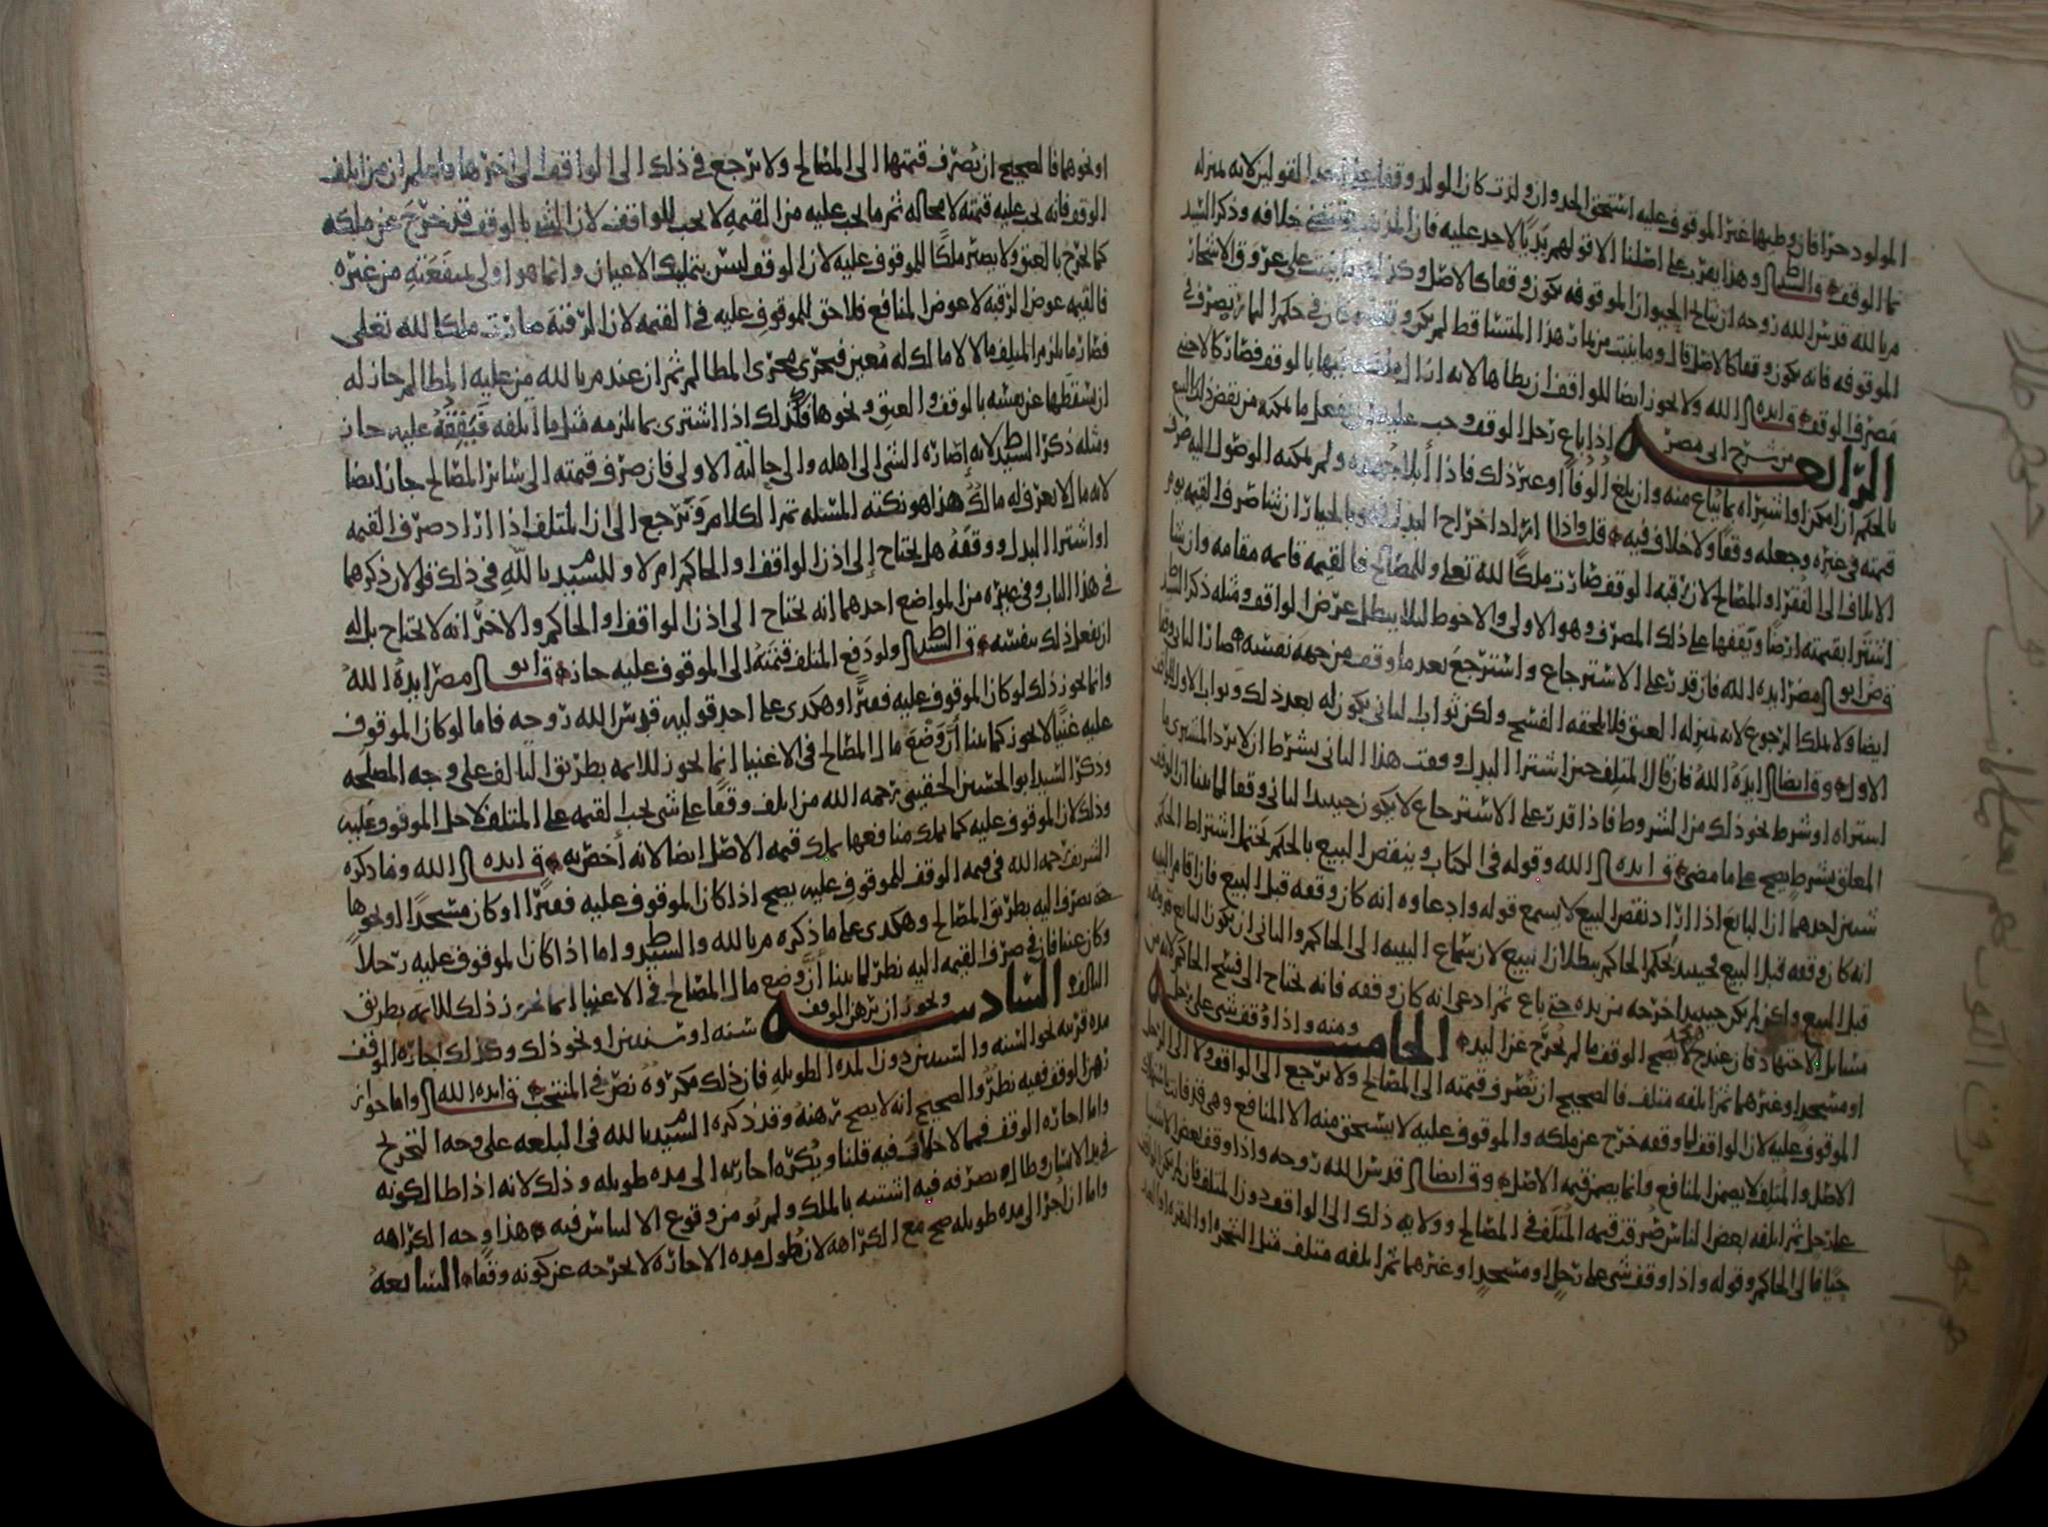 المولود حرًا فان وطيها غير الموقوف عليه استحق الحد وان ولدت كان الولد وقفا على احد القولين لانه بمنزله
نما الوقف وهذا يعرب على اصلنا الا قولهم يؤيد بالاحد عليه فان خلافه وذكر السيد
م بالله قدس الله روحه ان نتاج الحيوان الموقوفه يكون وقفا كالاصل وكذلك ما ينبت على عروق الاشجار
الموقوفه فانه يكون وقفا كالاصل قال وما ينبت من هذا المتساقط لم يكن وقفا في حكم
مصرف الوقف قال ايده الله ولا يجوز ايضا للواقف ان يطاها لانه اذا بالوقف فصار كالاجنبي
الرابعه من شرح ابى مضر اذا باع رجل الوقف وجب عليه ان يفعل ما يمكنه من نقض ذلك البيع
بالحكم ان امكن او اشتراه بما يباع منه وان بلغ الوفا او غير ذلك فاذا ابلا جهده ولم يمكنه الوصول اليه صرف
قيمته في غيره وجعله وقفا ولا خلاف فيه قلت واذا اراد اخراج البدل فهو بالخيار ان شا صرف القيمه يوم
الاتلاف الى الفقرا او المصالح لان رقبه الوقف صارت ملكا لله تعلى وللمصالح فالقيمه قايمه مقامه وان شا
اشترا بقيمته ارضا ويقفها على ذلك المصرف وهو الاولى والاحوط ليلا يبطل غرض الواقف ومثله ذكر السيد
قال ابو مضر ايده الله فان قدر على الاسترجاع واسترجع بعد ما وقف من جهه نفسه صار الثاني وقفا
ايضا ولا يملك الرجوع لانه بمنزله العتق فلا يلحقه الفسخ ولكن ثواب الثاني يكون له بعد ذلك وثواب الاول للواقف
الاول وقال ايضا ايده الله فان قال المتلف حين اشترا البدل وقفت هذا الثاني بشرط ان لا يرد المشتري ما
استراه او شرط نحو ذلك من الشروط فاذا قدر على الاسترجاع لا يكون حينيذ الثاني وقفا لما بينا ان الوقف
المعلق بشرط يصح على ما مضى قال ايده الله وقوله في الكتاب وينقض البيع بالحكم يحتمل اشتراط الحكم
شيين احدهما ان البايع اذا اراد نقض البيع لا يسمع قوله وادعاوه انه كان وقفه قبل البيع فان اقام البينه
انه كان وقفه قبل البيع فحينيذ يحكم الحاكم ببطلان البيع لان سماع البينه الى الحاكم والثاني ان يكون البايع
قبل البيع ولكن لم يكن حينيذ اخرجه من يده حتى باع ثم ادعى انه كان وقفه فانه يحتاج الى فسخ الحاكم لانه من
مسايل الاجتهاد فان عندح لا يصح الوقف ما لم يخرج عن اليد الخامسه ومنه واذا وقف شي على رجل
او مسجد او غيرهما ثم اتلفه متلف فالصحيح ان تصرف قيمته الى المصالح ولا يرجع الى الواقف ولا الى الرجل
الموقوف عليه لان الواقف لما وقفه خرج عن ملكه والموقوف عليه لا يستحق منه الا المنافع وهي قد فاتت
الاصل والمتلف لا يضمن المنافع وانما يضمن قيمه الاصل وقال ايضا قدس الله روحه واذا وقف بعض الاشيا
على رجل ثم اتلفه بعض الناس صرف قيمه المتلف في المصالح وولايه ذلك الى الواقف دون المتلف فان لم يكن الواقف
حيا فالى الحاكم وقوله واذا وقف شي على رجل او مسجد او غيرهما ثم اتلفه متلف مثل الشجره او البقره او العبد
او نحوهما فالصحيح ان تصرف قيمتها الى المصالح ولا يرجع في ذلك الى الواقف الى اخرها فاعلم ان من اتلف
الوقف فانه يجب عليه قيمته لا محاله ثم ما يجب عليه من القيمه لا يجب للواقف لان الشي بالوقف قد خرج عن ملكه
كما يخرج بالعتق ولا يصير ملكا للموقوف عليه لان الوقف ليس بتمليك الاعيان وانما هو اولى بمنفعته من غيره
فالقيمه عوض الرقبه لا عوض المنافع فلا حق للموقوف عليه في القيمه لان الرقبه صارت ملكا لله تعلى
فصار ما يلزم المتلف مالا لا مالك له معين فجرى مجرى المظالم ثم ان عند م بالله من عليه المظالم جاز له
ان يسقطها عن نفسه بالوقف والعتق ونحوها فكذلك اذا اشترى بما يلزمه مثل ما اتلفه فيقفه عليه جاز
ومثله ذكر السيد ط لانه اصاره الشي الى اهله والى حالته الاولى فان صرف قيمته الى ساير المصالح جاز ايضا
لانه مال لا يعرف له مالك هذا هو نكته المسله ثم الكلام يرجع الى ان المتلف اذا اراد صرف القيمه
او اشترا البدل ووقفه هل يحتاج الى اذن الواقف او الحاكم ام لا وللسيد م بالله في ذلك قولان ذكرهما
في هذا الباب وفي غيره من المواضع احدهما انه يحتاج الى اذن الواقف او الحاكم والاخر انه لا يحتاج بل له
ان يفعل ذلك بنفسه قال السيد ط ولو دفع المتلف قيمته الى الموقوف عليه جاز قال ابو مضر ايده الله
وانما يجوز ذلك لو كان الموقوف عليه فقيرا وهكذى على احد قوليه قدس الله روحه فاما لو كان الموقوف
عليه غنيا لا يجوز كما بينا ان وضع مال المصالح في الاغنيا انما يجوز للايمه بطريق التالف على وجه المصلحه
وذكر السيد ابو الحسين الحقيني رحمه الله من اتلف وقفا على شي يجب القيمه على المتلف لاجل الموقوف عليه
وذلك لان الموقوف عليه كما يملك منافعها يملك قيمه الاصل ايضا لانه أخص به قال ايده الله وما ذكره
الشريف رحمه الله في قيمه الوقف للموقوف عليه يصح اذا كان الموقوف عليه فقيرا او كان مسجدا او نحوها
حتى يصرف اليه بطريق المصالح وهكذى على ما ذكره م بالله والسيد ط واما اذا كان الموقوف عليه رجلا
وكان غنيا فان في صرف القيمه اليه نظر لما بينا ان وضع مال المصالح في الاغنيا انما يجوز ذلك للايمه بطريق
التالف السادسه ويجوز ان يرهن الوقف سنه او سنتين او نحو ذلك وكذلك اجاره الوقف
مده قريبه نحو السنه والسنتين دون المده الطويله فان ذلك مكروه نص في المنتخب قال ايده الله واما جواز
رهن الوقف ففيه نظر والصحيح انه لا يصح رهنه وقد ذكره السيد م بالله في البلغه على وجه التخريج
واما اجاره الوقف فمما لا خلاف فيه قلنا ويكره اجارته الى مده طويله وذلك لانه اذا طال كونه
في يد الانسان وطال تصرفه فيه اشتبه بالملك ولم نومن وقوع الالتباس فيه هذا وجه الكراهه
واما ان اجر الى مده طويله صح مع الكراهه لان طول مده الاجازه لا يخرجه عن كونه وقفا السابعه